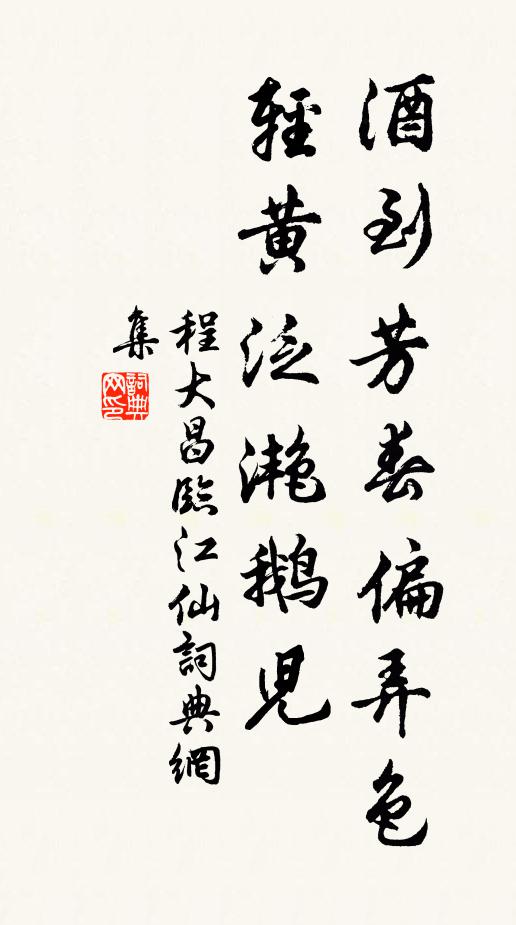 酒到芳春偏弄色
輕黃泛灩鵝兒
程大昌臨江仙詞典網
集
詞典
网印